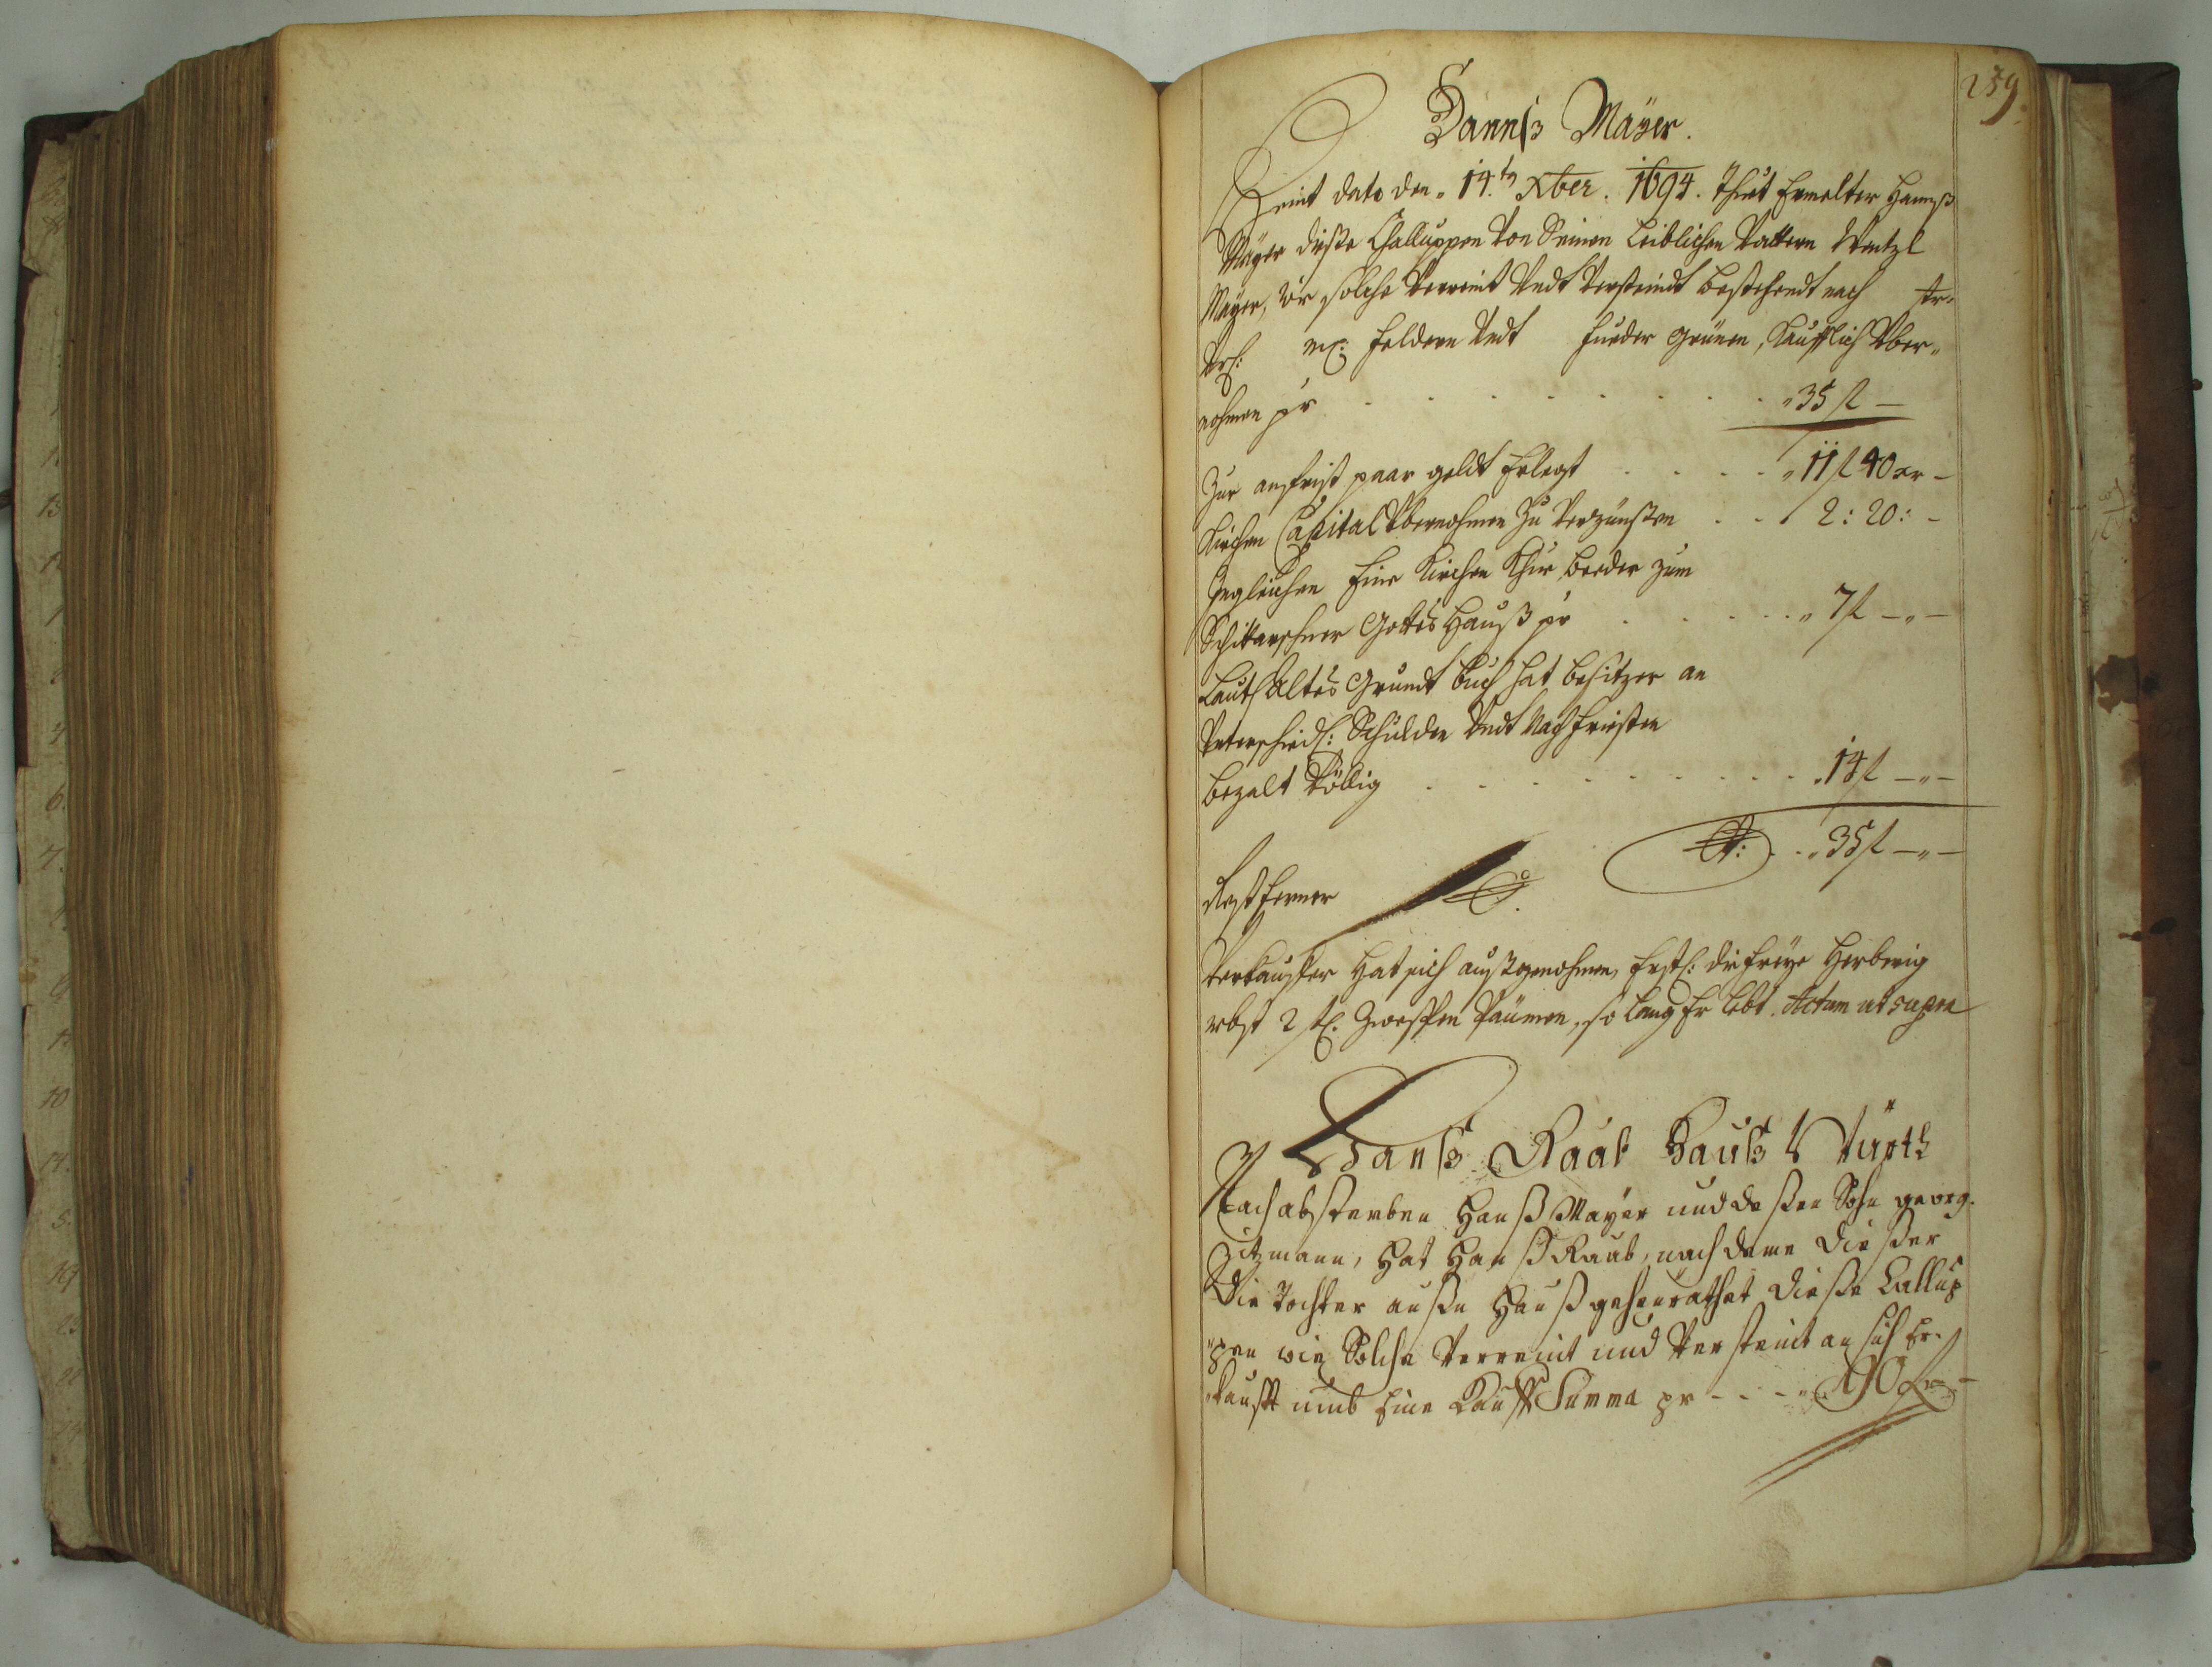 259.
Hannß Mäyer.
Heint dato den 14.tn Xber. 1694. Thuet Ermelter Hannß
Mäyer dieße Challuppen von Seinen Leiblichen Vattern Wentzl
Mayer, wie solche verreint Undt versteindt bestehendt nach str.
Vrl: mß: Feldern Undt Fueder Grünen, Kaufflich Uber„
nohmen pr . . . . . . . . „35 fl —
Zur angfrist paar geldt Erlegt . . . . „11 fl 40 xr —
Kirchen Capital Ubernohmen Zu Verzünßen . . 2 : 20 : —
Ingleichen Eine Kirchen Khue beeder zum
Gottes Hauß pr . . . . . „ 7 fl — „ —
Lauth Altes Grundt buch hat besitzer an
Unterschiedl: Schulden Undt Nachfristen
bezalt Völlig . . . . . . . . „14 fl — „ —
St: . . „35 fl — „ —
Rest ferner 0.
Verkauffer Hat sich außgenohmen, Erstl: die freye Herberig
nebst 2 st: Zweschken Päumen, so lang Er lebt. Actum ut supra
Hanß Raab Hauß Würth
Nach absterben Hanß Mayer und deßen Sohn georg.
Zitzmann, Hat Hanß Raab, nach deme dießer
Die Tochter außn Hauß geheürathet dieße Callup
„pen wie Solche Verreint und Versteint an sich Er„
„kaufft umb Eine Kauff Summa pr - - - „ 90 fl —